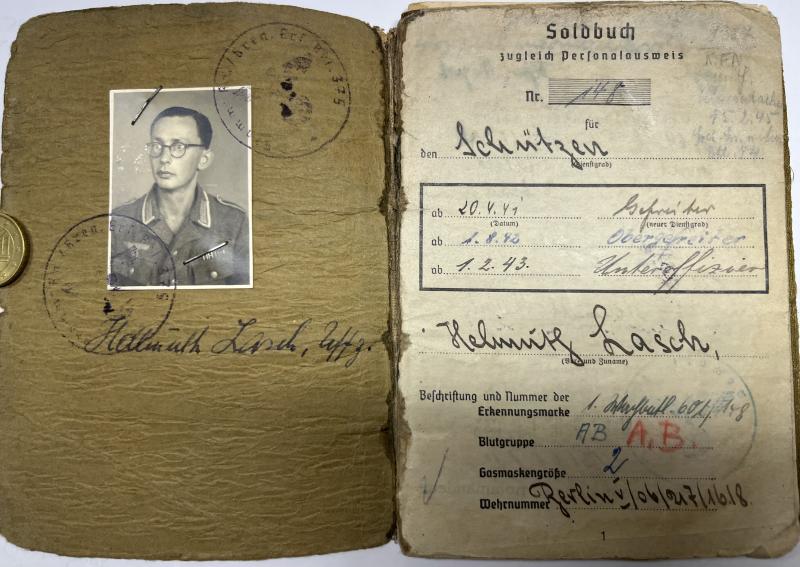 Helmuth Lasch, Uffz.
Soldbuch
zugleich Personalausweis
Nr. 148
für
den Schützen
(Dienstgrad)
ab 20.4.41 Gefreiter
(Datum) (neuer Dienstgrad)
ab 1.8.42 Obergefreiter
ab 1.2.43. Unteroffizier
Helmuth Lasch,
(Vor- und Zuname)
Beschriftung und Nummer der
Erkennungsmarke 1.
Blutgruppe AB A.B.
Gasmaskengröße 2
Wehrnummer Berlin V/06/217/16/8.
1